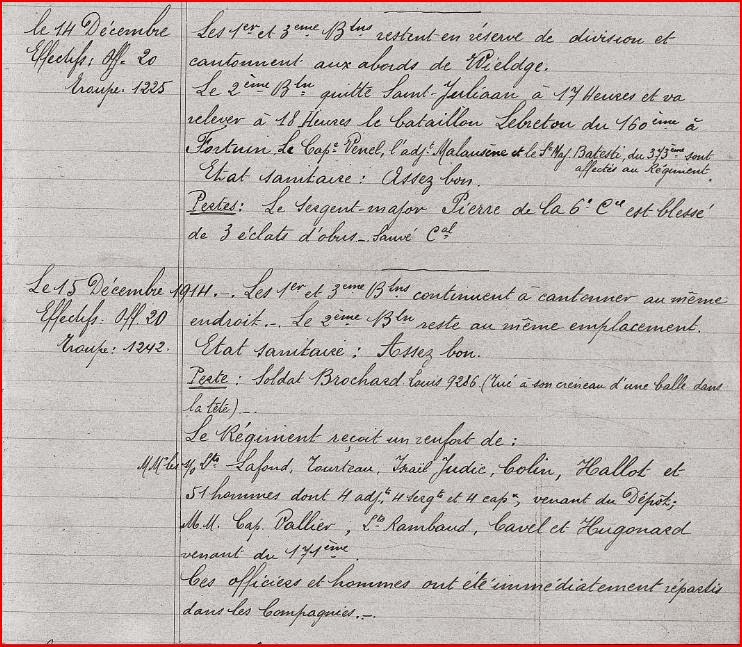 le 14 Décembre
Effectifs: Off. 20
Troupe. 1225
Les 1er et 3eme Blns restent en réserve de division et
cantonnent aux abords de Wieldge.
Le 2ème Bln quitte Saint-Juliaan à 17 Heures et va
relever à 18 Heures le bataillon Lebreton du 160ème à
Fortuin. Le Cape Penel, l'adjt Malausène et le St Maj. Batesti, du 373ème sont
affectés au Régiment.
Etat sanitaire: Assez bon.
Pertes: Le Sergent-major Pierre de la 6e Cie est blessé
de 3 éclats d'obus_ Sauvé Cal
Le 15 Décembre 1914._. Les 1er et 3eme Blns continuent à cantonner au même
Effectifs: Off. 20
Troupe: 1242.
endroit._. Le 2ème Bln reste au même emplacement.
Etat sanitaire: Assez bon.
Perte: Soldat Brochard Louis 9286 (Tué à son créneau d'une balle dans
la tête)_
Le Régiment reçoit un renfort de:
MM. les s/s Lts Lafond, Tourteau, Judic, Colin, Hallot et
51 hommes dont 4 adjts 4 sergts et 4 capx, venant du Dépôt;
M.M. Cap. Pallier, Lts Rambaud, Cavel et Hugonard
venant du 171ème.
Ces officiers et hommes ont été immédiatement répartis
dans les Compagnies._.